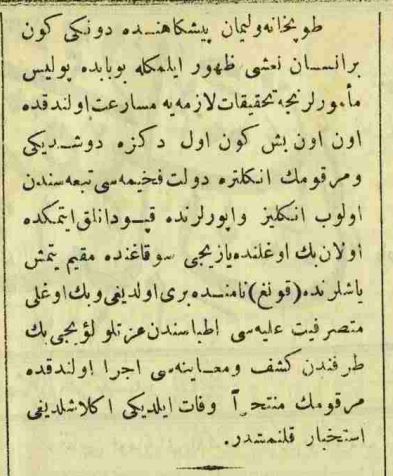 طوپخانه‌ولیمان پیشکاهنده دونکی کون
بر انسان نعشی ظهور ایلمکله بوبابده پولیس
مأمورلرنجه تحقیقات لازمه‌یه مسارعت اولندقده
اون اون بش کون اول دکزه دوشدیکی
ومرقومك انکلتره دولت فخیمه‌سی تبعه‌سندن
اولوب انکلیز واپورلرنده قپودانلق ایتمکده
اولان بك اوغلنده یازیجی سوقاغنده مقیم یتمش
یاشلرنده (قونغ) نامنده بری اولدیغی وبك اوغلی
متصرفیت علیه‌سی اطباسندن عزتلو لؤیجی بك
طرفندن کشف ومعاینه‌سی اجرا اولندقده
مرقومك منتحراً وفات ایلدیکی اکلاشلدیغی
استخبار قلنمشدر.